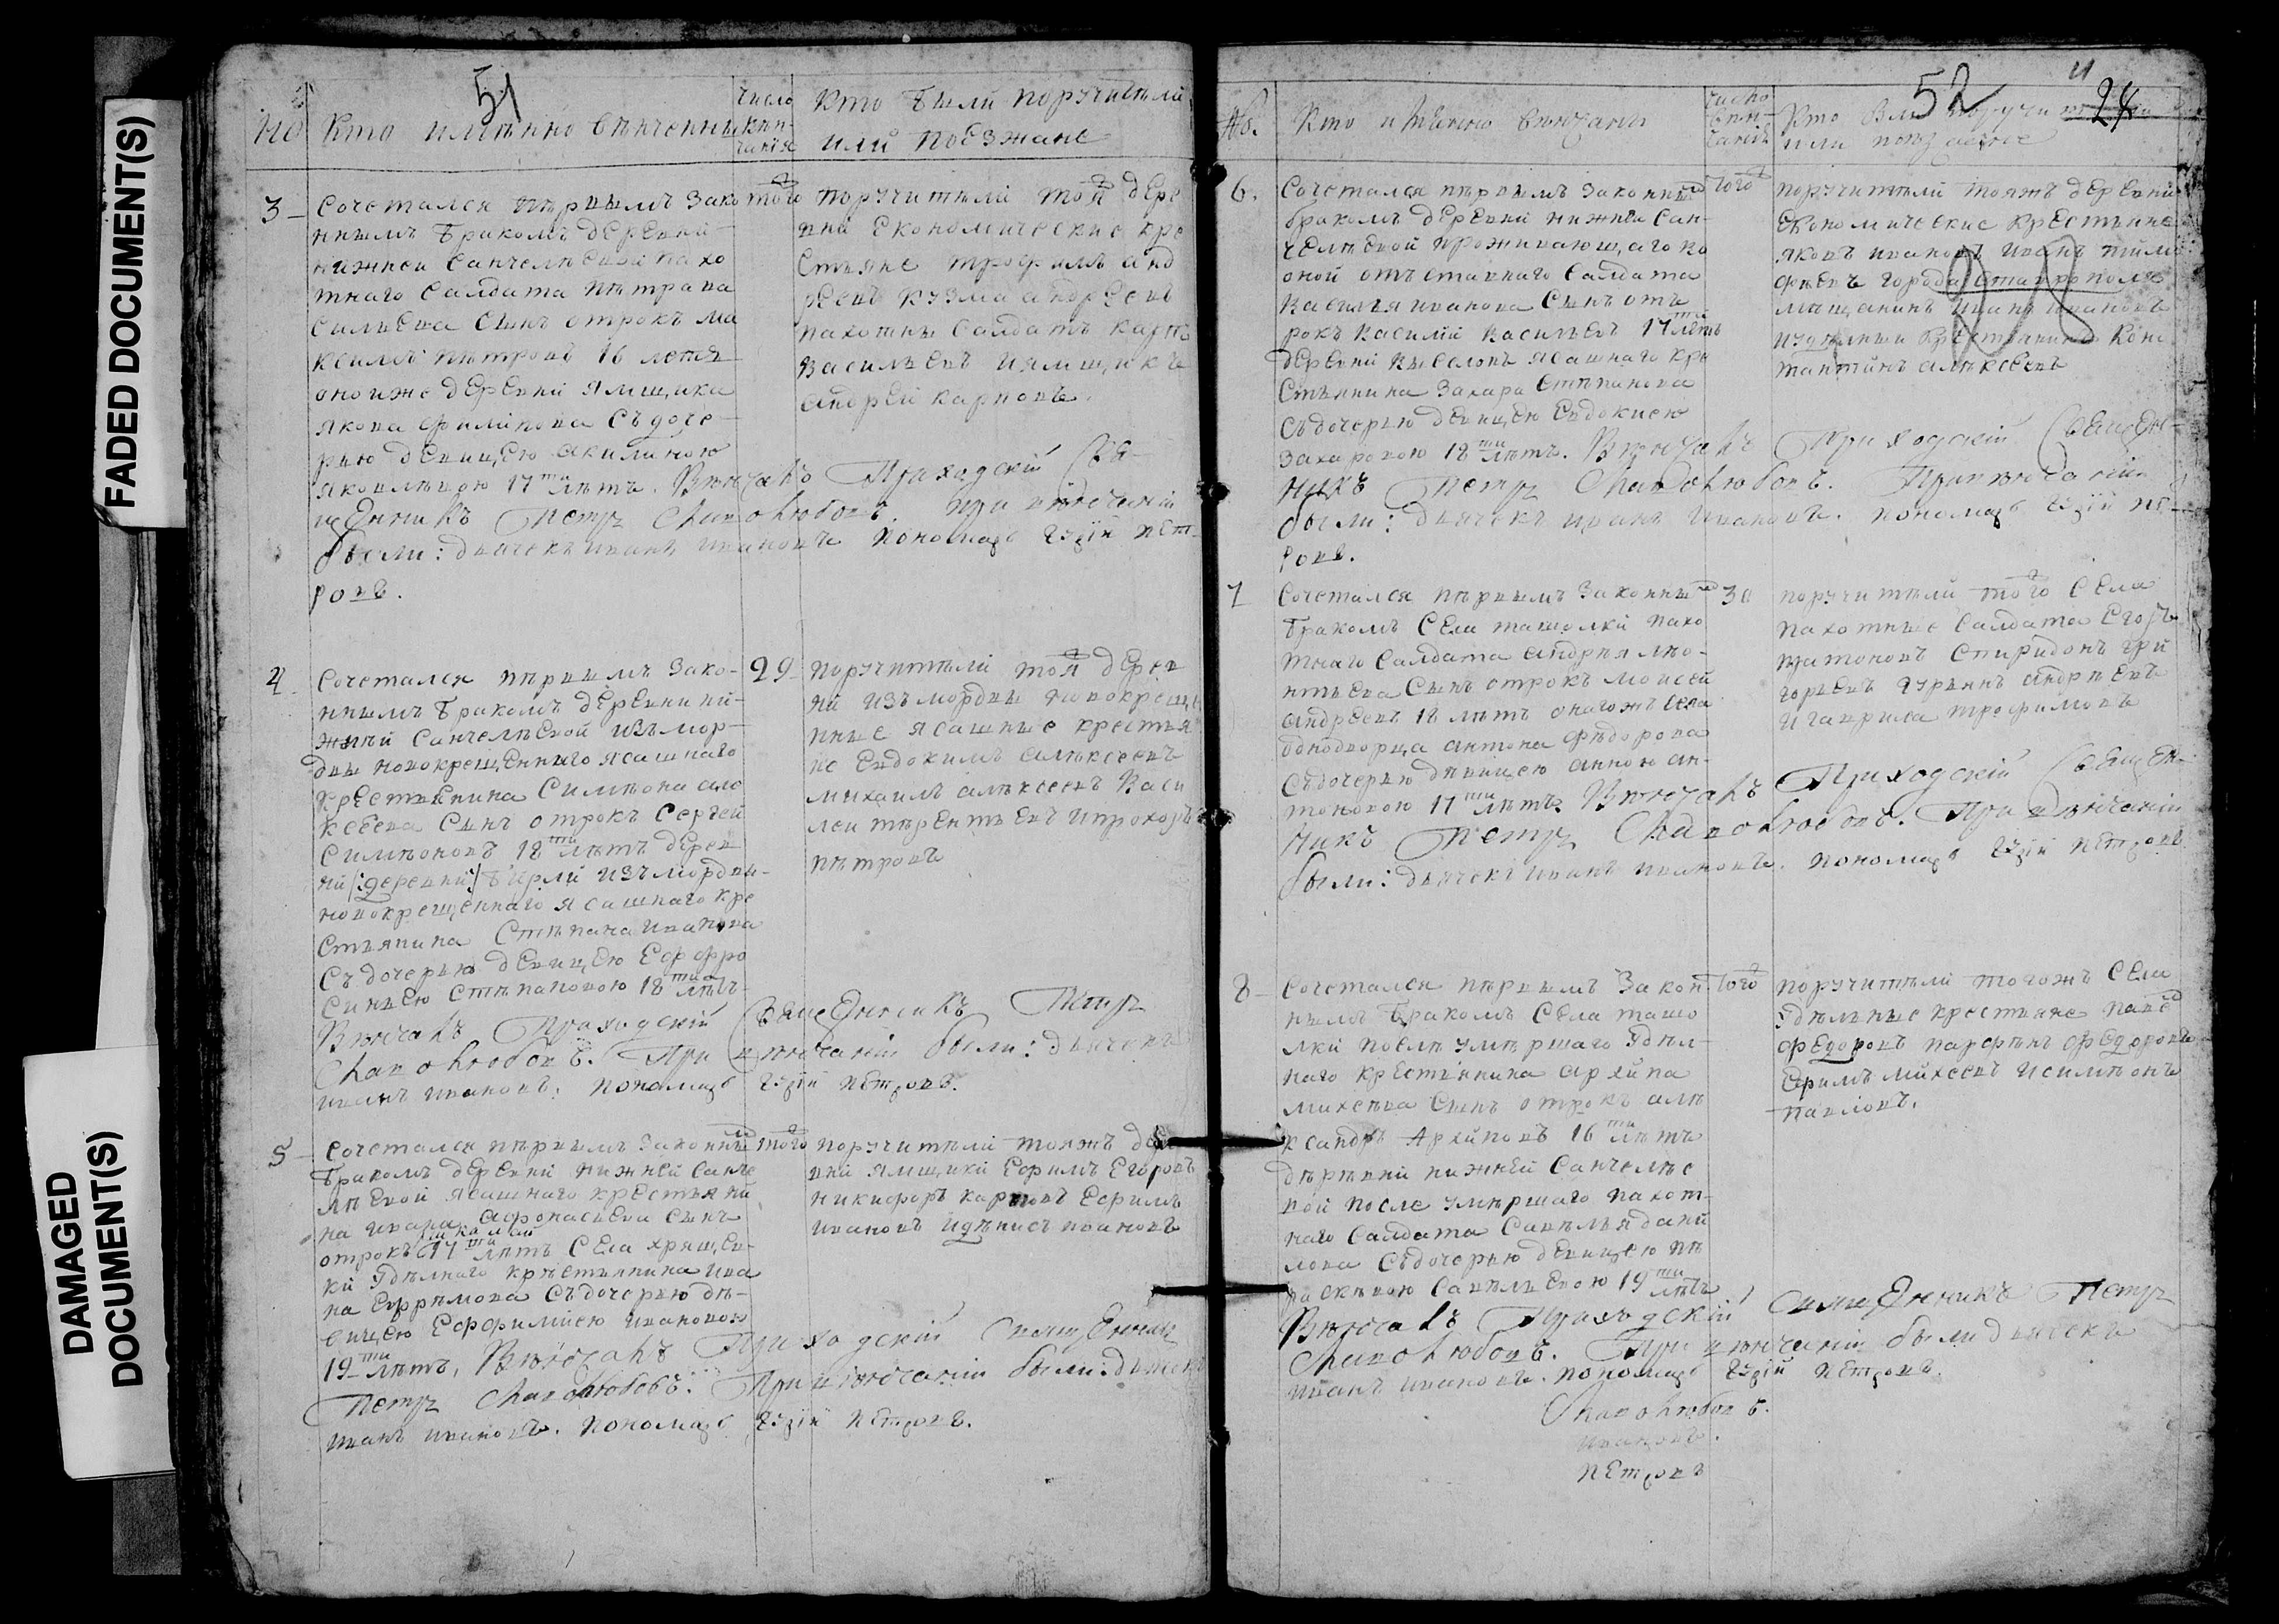 FADED DOCUMENT(S)
DAMAGED
DOCUMENT(S)
51
№
Кто имянно венчены
число
вен-
чания
Кто были поручители
или поезжане
3
Сочетался первымъ зако
ннымъ бракомъ деревни
нижней Санчелеевой пахо
тнаго салдата Петра ва
сильева сынъ отрокъ ма
ксимъ петровъ 16 летъ
оно иже деревни ямщика
якова филипова съ доче
рью девицею акилиною
яковлевою 17ти летъ. Венчалъ Приходскій Свя-
щенникъ Петръ Славолюбовъ. при венчаніи
были: дьячекъ иванъ ивановъ пономарь Гурій пет-
ровъ.
того
поручители той дере
вни економические кре
стьяне трофимъ анд
реевъ кузма андреевъ
пахотны салдатъ карпъ
васильевъ и ямщикъ
андрей карповъ.
4
Сочетался первымъ зако-
ннымъ бракомъ деревни ни-
жней Санчелеевой изъ мор-
двы новокрещеннаго ясашнаго
крестьянина Симеона але
ксеева сынъ отрокъ Сергей
Симеоновъ 18ти летъ дерев
ни /:деревни:/ бирли изъ мордвы
новокрещеннаго ясашнаго кре
стьянина Степана иванова
съ дочерью девицею Еффро
синьею Степановою 18ти летъ
Венчалъ Приходскій Священникъ Петръ
Славолюбовъ. При венчаніи были: дьячекъ
иванъ ивановъ. пономарь Гурій петровъ.
29
поручители той дерев
ни изъ мордвы новокреще
нные ясашные крестья
не Евдокимъ алексеевъ
михаилъ алексеевъ Васи
леи терентьевъ и прохоръ
петровъ
5
Сочетался первымъ законны
бракомъ деревни нижней Санче
леевой ясашнаго крестьяни
на ивана афонасьева сынъ
николай
отрокъ 17ти летъ села хряще-
ки уделнаго крестьянина ива
на Ефремова съ дочерью де-
вицею Ефимиею ивановою
19ти летъ. Венчалъ Приходскій Священникъ
Петръ Славолюбовъ. При венчаніи были: дьячекъ
иванъ ивановъ. пономарь Гурій петровъ.
того
поручители тояжъ дере
вни ямщики Ефимъ Егоровъ
никифоръ карповъ Ефимъ
ивановъ и денисъ ивановъ
52
28
№.
Кто имянно венчаны
число
вен-
чания
Кто были поручители
или поезжане
6.
Сочетался первымъ законны
бракомъ деревни нижней Сан-
челеевой проживающаго во
оной отъ ставнаго салдата
василья иванова сынъ от
рокъ Василий васильевъ 17ти летъ
деревни Выселокъ ясашнаго кре
стьянина Захара Степанова
съ дочерью девицею Евдокиею
Захаровою 18ти летъ. Венчалъ Приходскій Священ-
никъ Петръ Славолюбовъ. При венчаніи
были: дьячекъ иванъ ивановъ. пономарь Гурій пет-
ровъ.
того
поручители тояжъ деревни
економические крестьяне
яковъ ивановъ иванъ тимо
феевъ города ставрополя
мещанинъ иванъ ивановъ
и крестьянинъ Конс
тантинъ алексеевъ
7
Сочетался первымъ законны
бракомъ села ташолки пахо
тнаго салдата андрея лео-
нтьева сынъ отрокъ моисей
андреевъ 18 летъ онагожъ села
однодворца антона федорова
съ дочерью девицею анною ан-
тоновою 17ти летъ. Венчалъ Приходскій Священ-
никъ Петръ Славолюбовъ. При венчаніи
были: дьячекъ иванъ ивановъ. пономарь Гурій петровъ
30
поручители того села
пахотные салдаты Егоръ
Спиридонъ гри
горьевъ гурьянъ андреевъ
и гаврила трофимовъ
8
Сочетался первымъ закон
нымъ бракомъ села ташо
лки после умершаго удел-
наго крестьянина архипа
михеева сынъ отрокъ але
ксандръ Архиповъ 16ти летъ
деревни нижней Санчелее
вой после умершаго пахот-
наго салдата Савелья дани
лова съ дочерью девицею пе
раскевою Савельевою 19ти летъ.
Венчалъ Приходскій священникъ Петръ
Славолюбовъ. При венчаніи были дьячекъ
иванъ ивановъ. пономарь Гурій петровъ.
Славолюбовъ.
ивановъ.
петровъ
того
поручители тогожъ села
удельные крестьяне павелъ
федоровъ парфенъ федоровъ
Ефимъ михеевъ и симеонъ
павловъ.